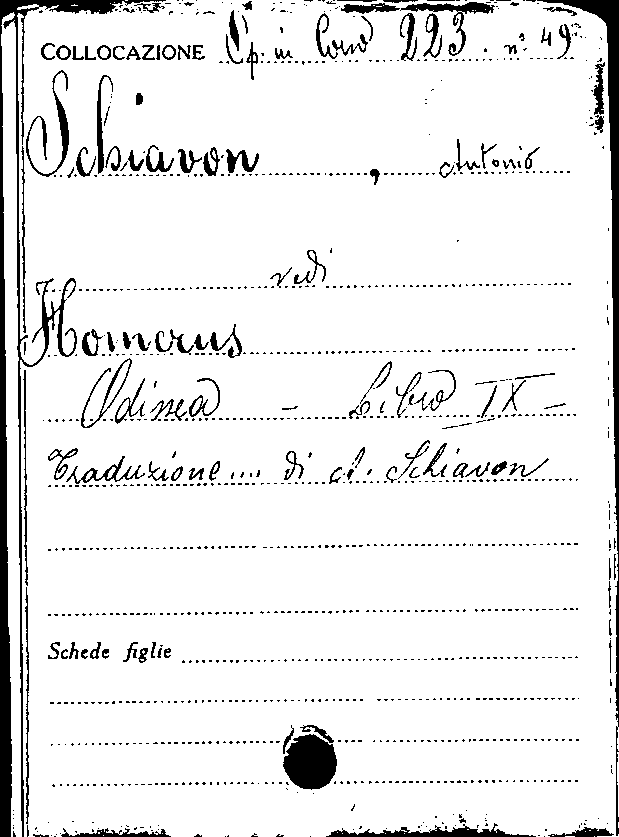 COLLOCAZIONE Op. in Corso 223. n° 49
Schiavon, Antonio
vedi
Homerus
Odissea - Libro IX -
Traduzione.... di A. Schiavon
Schede figlie